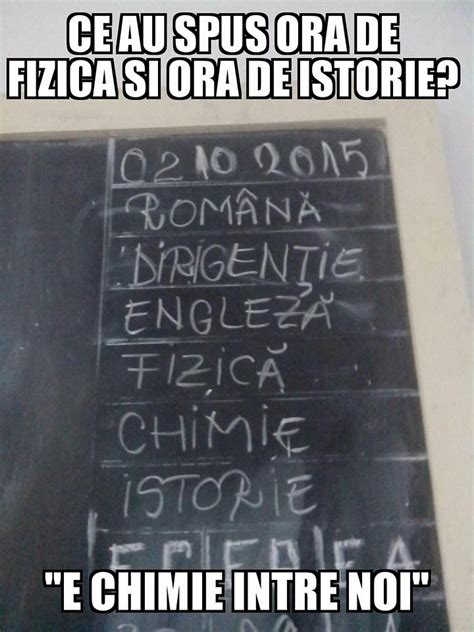 CE AU SPUS ORA DE
FIZICA SI ORA DE ISTORIE?
02 10 2015
ROMÂNĂ
DIRIGENȚIE
ENGLEZĂ
FIZICĂ
CHIMIE
ISTORIE
"E CHIMIE INTRE NOI"